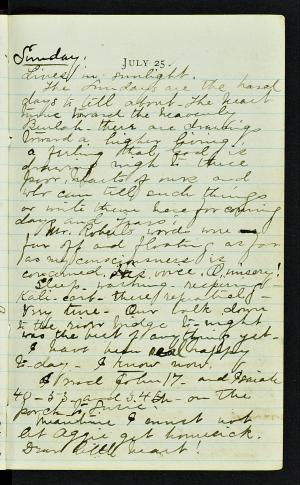 Sunday.
JULY 25.
Lives in sunlight.
The Sundays are the hard
days to tell about. The heart
move toward the heavenly
Beulah - there are drawings
toward a higher living,
a feeling that God is
drawing nigh to these
poor hearts of ours and
who can tell such things
or write them here for coming
days and years!
Mr. Roberts words were
far off and floating as far
as my consciousness is
concerned. His voice, O, misery!
Sleep - washing - reepering
there repeatedly -
time - Our walk down
to the river bridge to-night
was the best of anything yet -
I have been real happy
to-day - I know now,
I read John 17 - and Isaiah
40 - 53 - and 54 - on the
porch
Meantime I must not
let Aggie get homesick.
Dear little heart!